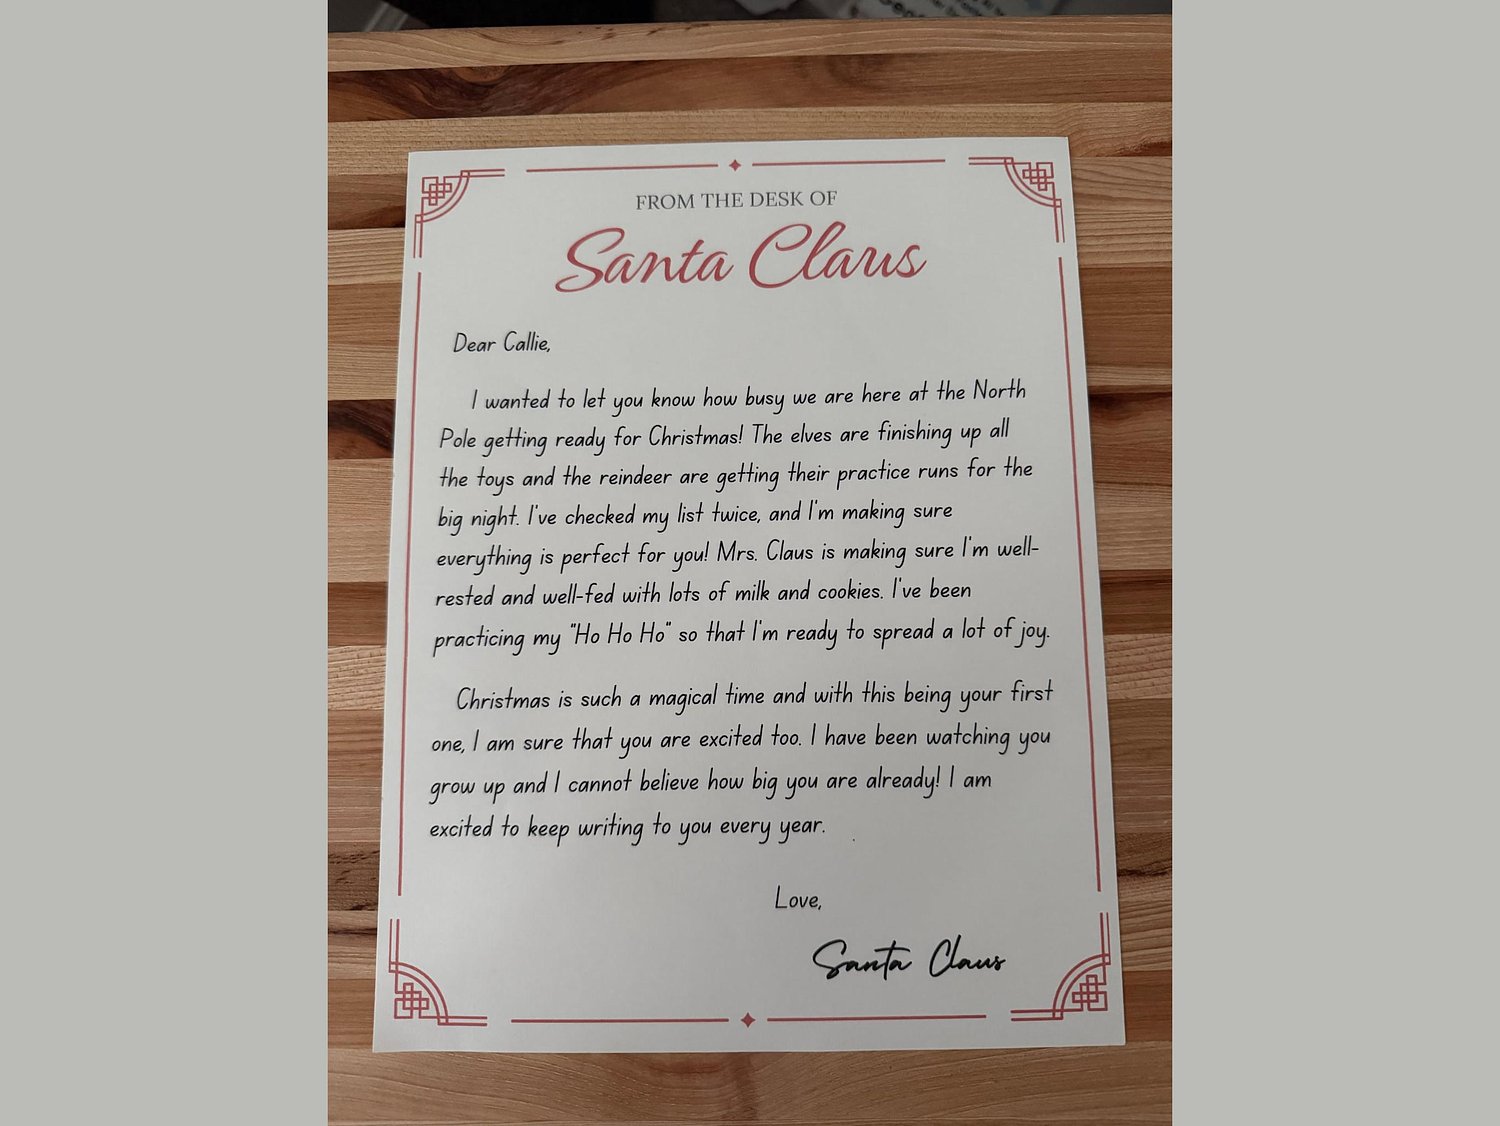 FROM THE DESK OF
Santa Claus
Dear Callie,
I wanted to let you know how busy we are here at the North
Pole getting ready for Christmas! The elves are finishing up all
the toys and the reindeer are getting their practice runs for the
big night. I've checked my list twice, and I'm making sure
everything is perfect for you! Mrs. Claus is making sure I'm well-
rested and well-fed with lots of milk and cookies. I've been
practicing my "Ho Ho Ho" so that I'm ready to spread a lot of joy.
Christmas is such a magical time and with this being your first
one, I am sure that you are excited too. I have been watching you
grow up and I cannot believe how big you are already! I am
excited to keep writing to you every year.
Love,
Santa Claus